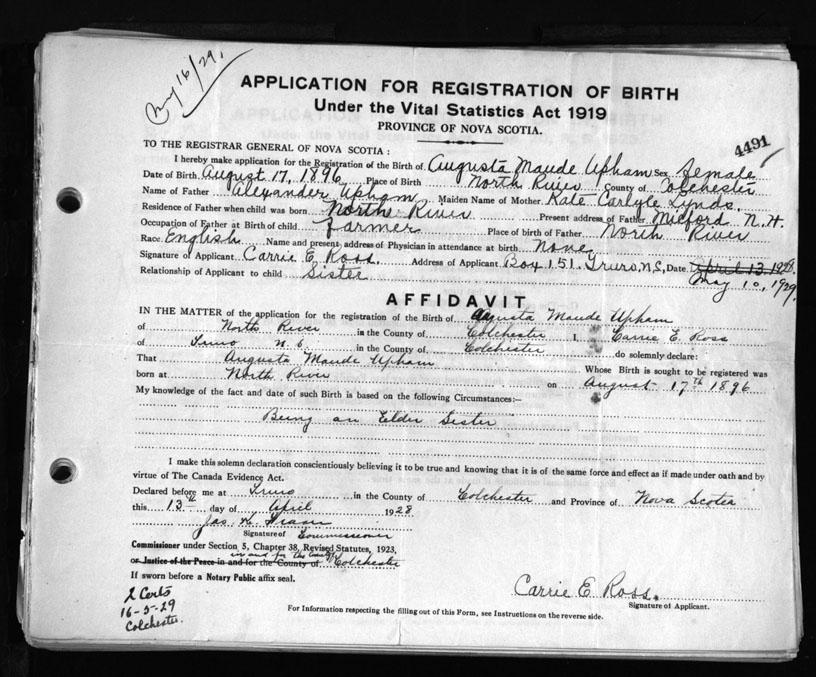 May 16/29.
APPLICATION FOR REGISTRATION OF BIRTH
Under the Vital Statistics Act 1919
PROVINCE OF NOVA SCOTIA.
4491
TO THE REGISTRAR GENERAL OF NOVA SCOTIA :
I hereby make application for the Registration of the Birth of Augusta Maude Upham Sex Female
Date of Birth August 17, 1896 Place of Birth North River County of Colchester
Name of Father Alexander Upham Maiden Name of Mother Kate Carlyle Lynds.
Residence of Father when child was born North River Present address of Father Milford N.H.
Occupation of Father at Birth of child Farmer Place of birth of Father North River
Race English Name and present address of Physician in attendance at birth None
Signature of Applicant Carrie E. Ross. Address of Applicant Box 151. Truro, N.S, Date April 13, 1928.
May 10, 1929.
Relationship of Applicant to child Sister
AFFIDAVIT
IN THE MATTER of the application for the registration of the Birth of Augusta Maude Upham
of North River in the County of Colchester I, Carrie E. Ross
of Truro N.S. in the County of Colchester do solemnly declare:
That Augusta Maude Upham Whose Birth is sought to be registered was
born at North River on August 17th 1896
My knowledge of the fact and date of such Birth is based on the following Circumstances:—
Being an Elder Sister
I make this solemn declaration conscientiously believing it to be true and knowing that it is of the same force and effect as if made under oath and by
virtue of The Canada Evidence Act.
Declared before me at Truro in the County of Colchester and Province of Nova Scotia
this 13th day of April 1928
Jas.
Signature of Commissioner
Commissioner under Section 5, Chapter 38, Revised Statutes, 1923,
in and for the County of
or Justice of the Peace in and for the County of Colchester
If sworn before a Notary Public affix seal.
Carrie E. Ross.
Signature of Applicant.
2 Certs
16-5-29
Colchester.
For Information respecting the filling out of this Form, see Instructions on the reverse side.